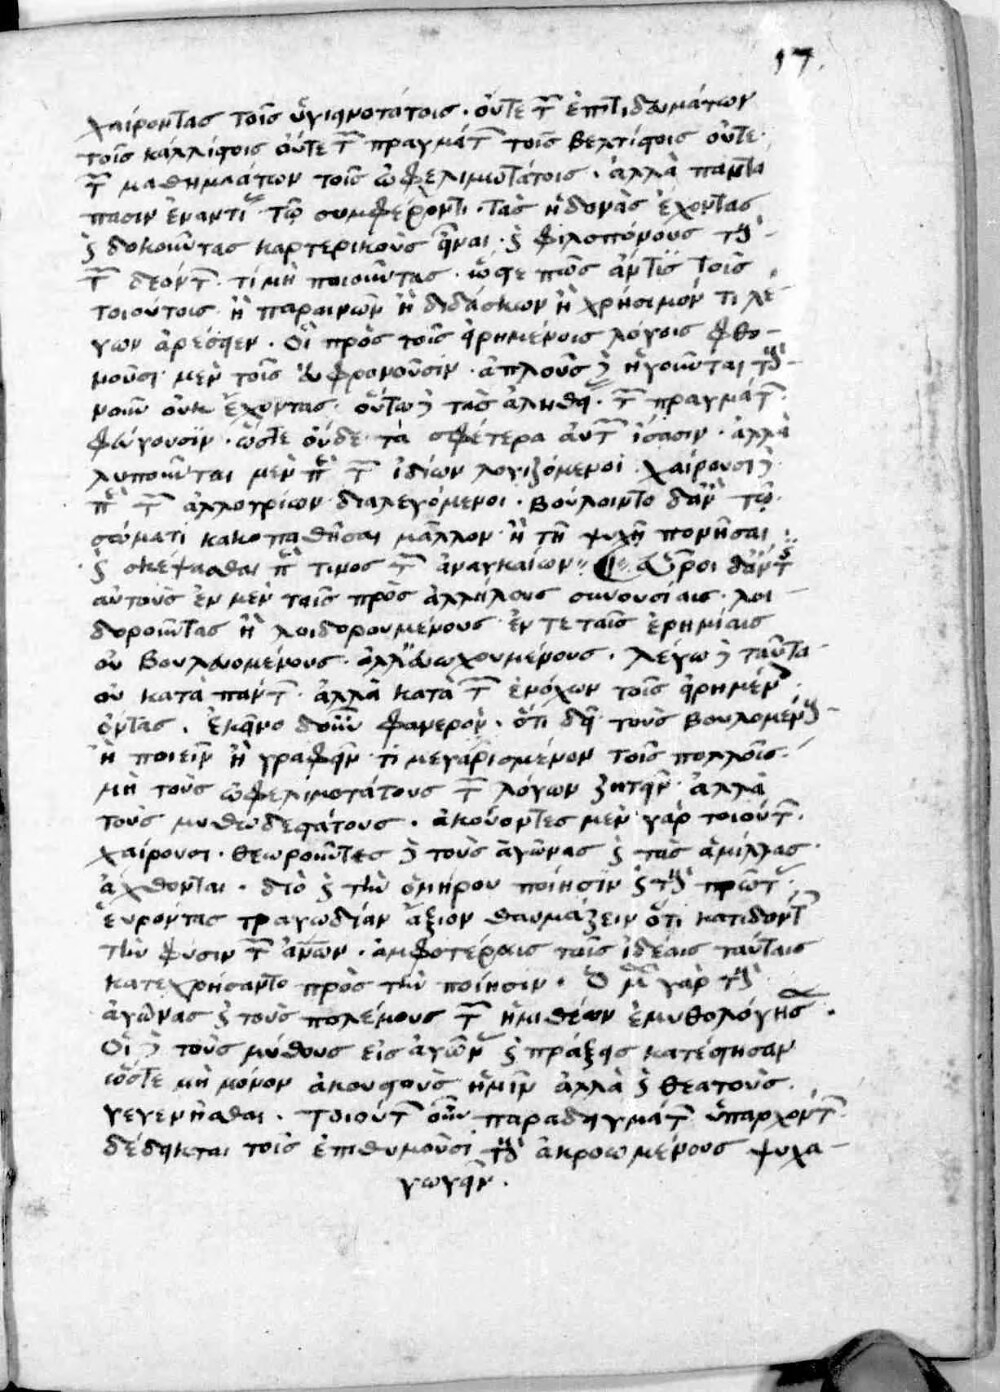 17.
χαίροντας τοῖς ὑγιηνοτάτοις. οὔτε τ͂ ἐπιτιδευμάτων
τοῖς καλλίστοις οὔτε τ͂ πραγμάτ͂ τοῖς βελτίστοις οὔτε
τ͂ μαθημάτων τοῖς ὠφελιμωτάτοις. ἀλλὰ παντά
πασιν ἐναντί τῶ συμφέροντι τὰς ἡδονὰς ἔχοντας
ϛ δοκοῦντας καρτερικοὺς εἶναι. ϛ φιλοπόνους τοὺς
τ͂ δεόντ͂. τὶ μὴ ποιοῦντας. ὥστε πῶς ἄν τις τοῖς
τοιούτοις ἢ παραινῶν ἢ διδάσκων ἢ χρήσιμόν τι λέ-
γων ἀρέσειεν. Οἳ πρὸς τοῖς εἰρημένοις λόγοις φθο-
νοῦσι μὲν τοῖς εὖ φρονοῦσιν. ἁπλοῦς δὲ ἡγοῦνται τοὺς
νοῦν οὐκ ἔχοντας. οὕτω δὲ τὰς ἀληθεί. τ͂ πραγμάτ͂.
φεύγουσιν. ὥστε οὐδὲ τὰ σφέτερα αὐτ͂ ἴσασιν. ἀλλὰ
λυποῦνται μὲν πὲ τ͂ ἰδίων λογιζόμενοι. χαίρουσι δὲ
πὲ τ͂ ἀλλοτρίων διαλεγόμενοι. βούλοιντο δ' ἂν τῶ
σώματι κακοπαθῆσαι μᾶλλον ἢ τῆ ψυχῆ πονῆσαι
ϛ σκέψασθαι πὲ τινος τ͂ ἀναγκαίων. Εὕροι δ' ἄν τις
αὐτοὺς ἐν μὲν ταῖς πρὸς ἀλλήλους συνουσίαις. λοι-
δοροῦντας ἢ λοιδορουμένους ἐν τε ταῖς ἐρημίαις
οὐ βουλευομένους. ἀλλ' εὐωχουμένους. λέγω δὲ ταῦτα
οὐ κατὰ πάντ͂. ἀλλὰ κατὰ τ͂ ἐνόχων τοῖς εἰρημέν
ὄντας. ἐκεῖνο δ' οὖν φανερὸν. ὅτι δεῖ τοὺς βουλομένους
ἢ ποιεῖν ἢ γράφειν τὶ μεγαρισμένον τοῖς πολλοῖς.
μὴ τοὺς ὠφελιμοτάτους τ͂ λόγων ζητεῖν ἀλλὰ
τοὺς μυθωδεστάτους. ἀκούοντες μὲν γὰρ τοιούτ͂.
χαίρουσι. θεωροῦντες δὲ τοὺς ἀγῶνας ϛ τὰς ἁμίλλας.
ἄχθονται. διὸ ϛ τὴν ὁμήρου ποίησιν ϛ τοὺς πρώτ
εὑρόντας τραγωδίαν ἄξιον θαυμάζειν ὅτι κατιδόντ
τὴν φύσιν τ͂ ἀνῶν. ἀμφοτέραις ταῖς ἰδέαις ταύταις
κατεχρήσαντο πρὸς τὴν ποίησιν. Ὃ μ̂ γὰρ τοὺς
ἀγῶνας ϛ τοὺς πολέμους τ͂ ἡμιθέων ἐμυθολόγησ.
Οἱ δὲ τοὺς μύθους εἰς ἀγῶν ϛ πράξεις κατέστησαν
ὥστε μὴ μόνον ἀκουστοὺς ἡμῖν ἀλλὰ ϛ θεατοὺς
γεγενῆσθαι. τοιούτ͂ οὖν παραδειγμάτ͂ ὑπαρχόντ͂
δέδεικται τοῖς ἐπιθυμοῦσι τοὺς ἀκροωμένους ψυχα-
γωγεῖν.